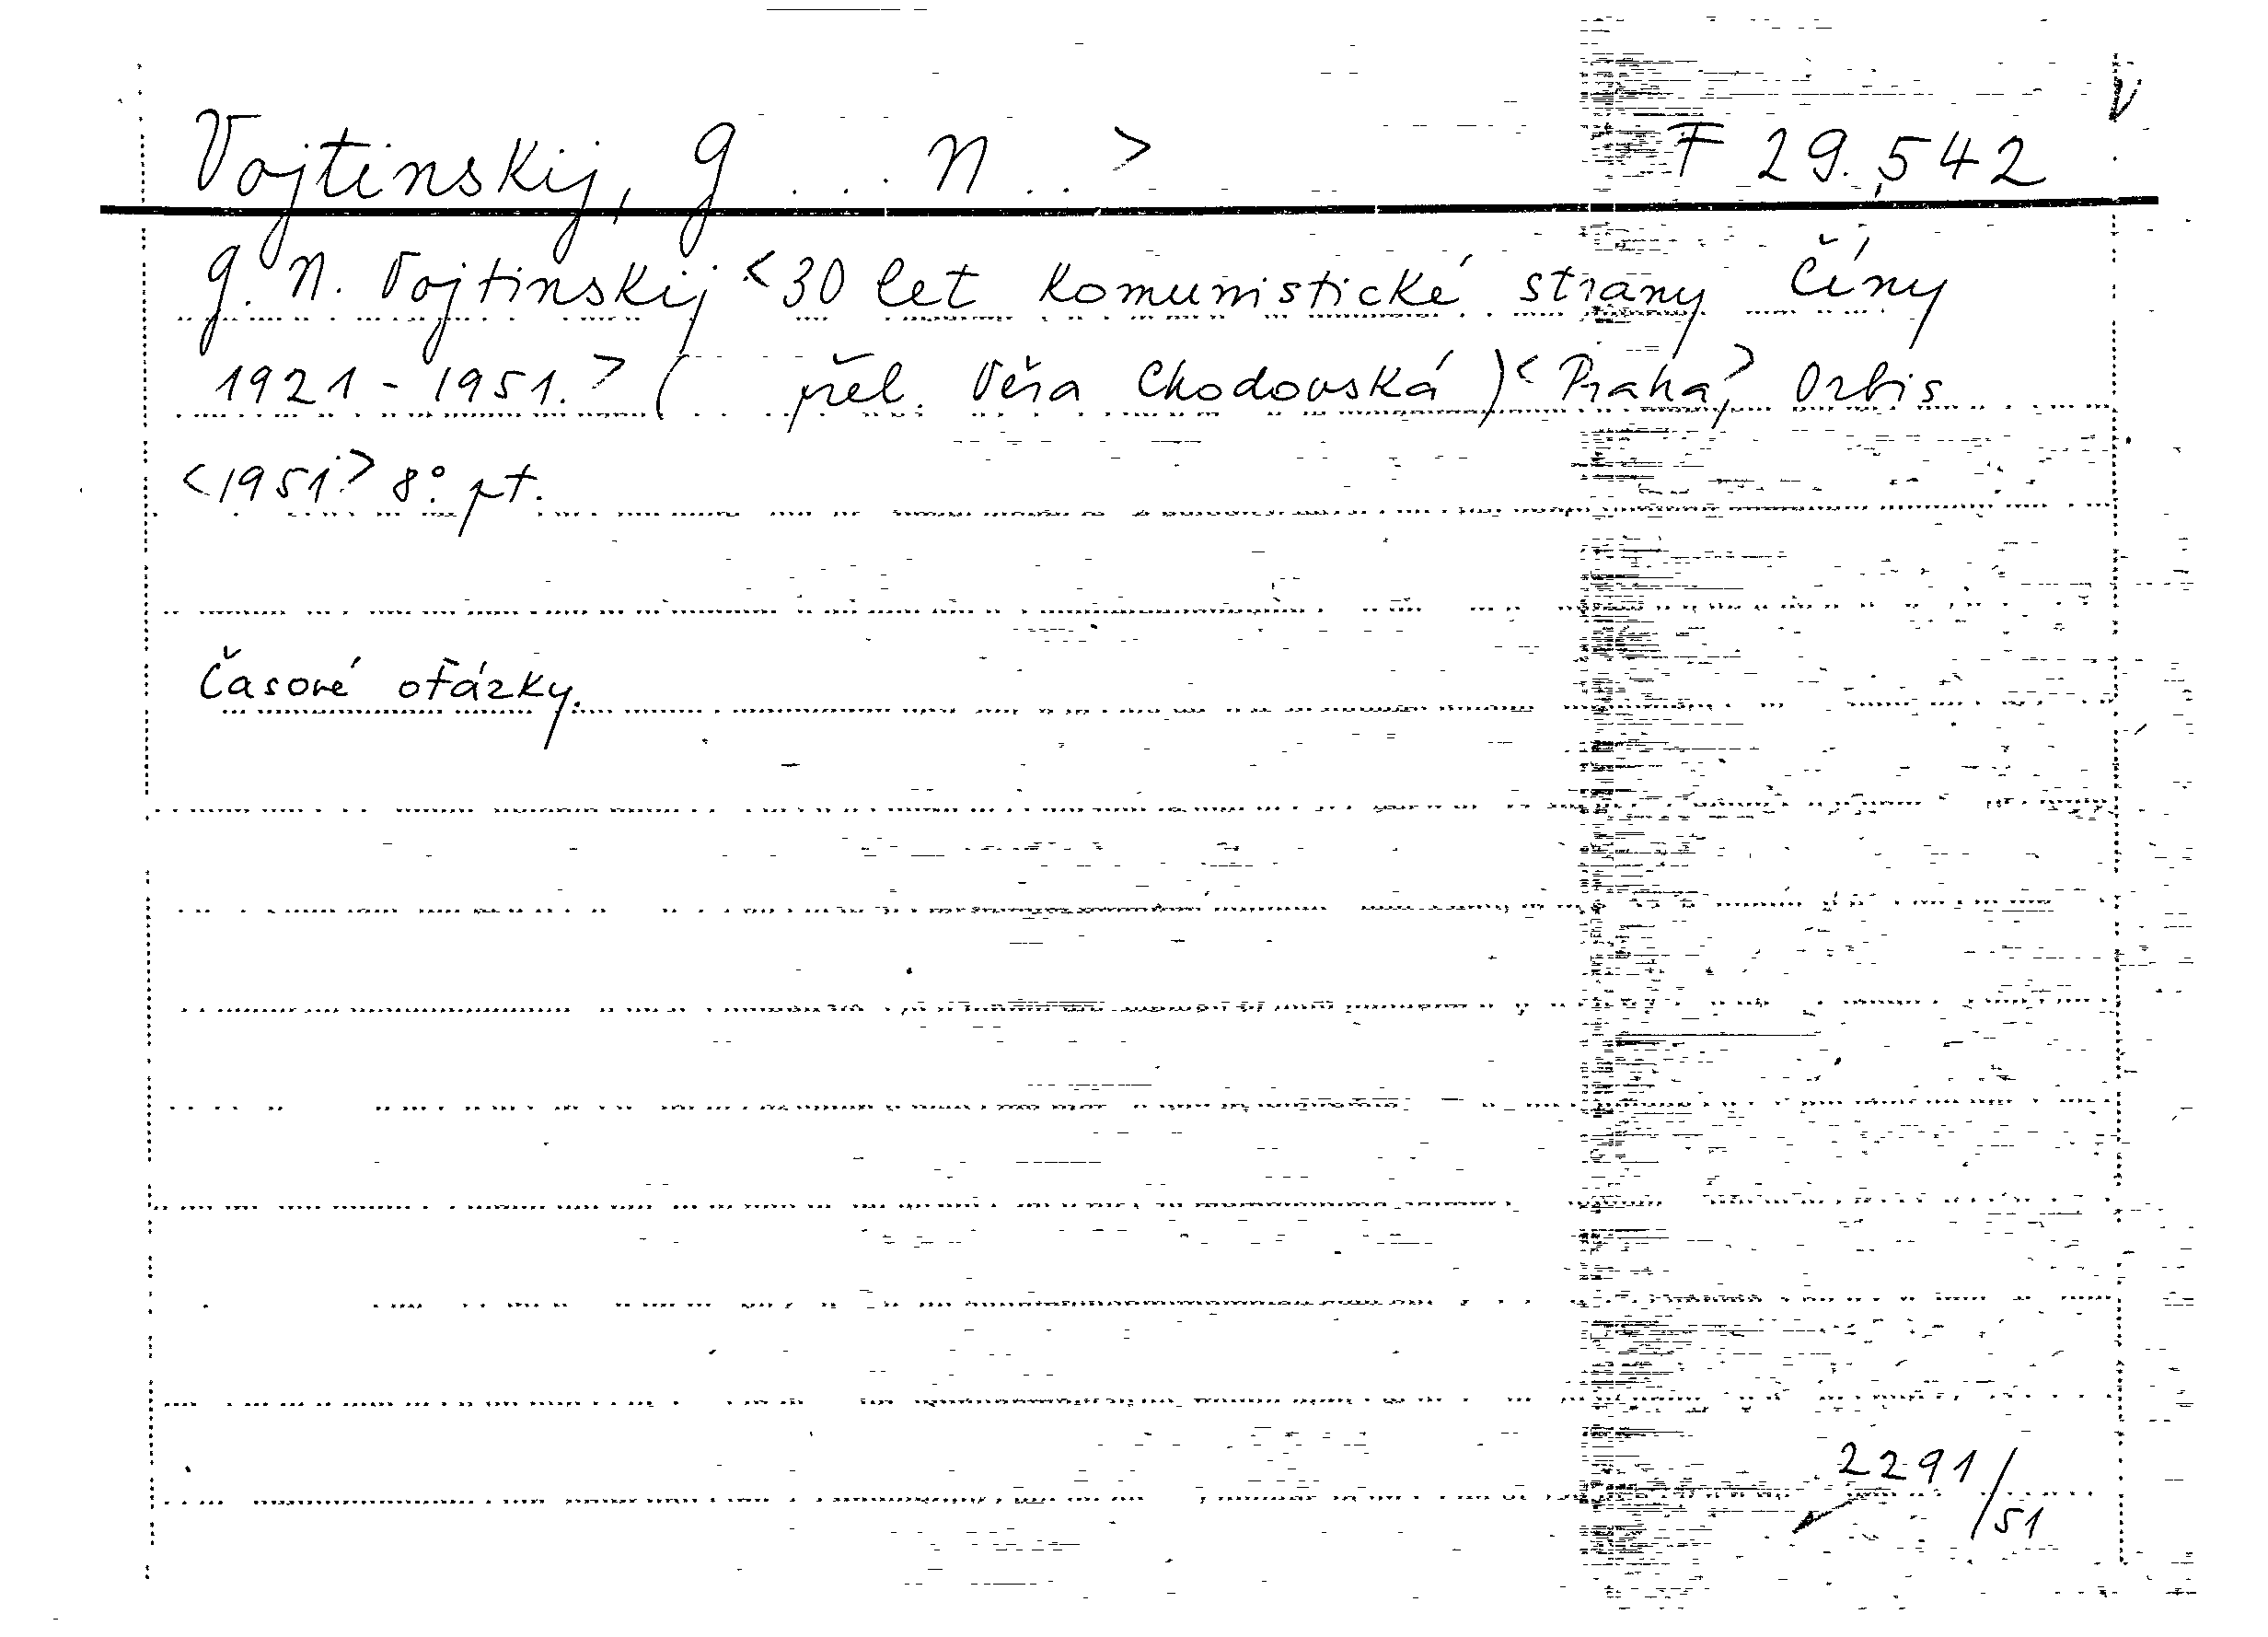 Vojtinskij, G ... N .. > F 29.542
G. N. Vojtinskij < 30 let Komunistické strany Číny
1921 - 1951. > ( přel. Věra Chodovská ) < Praha, > Orbis
< 1951. > 8° pt.
Časové otázky.
2291/51